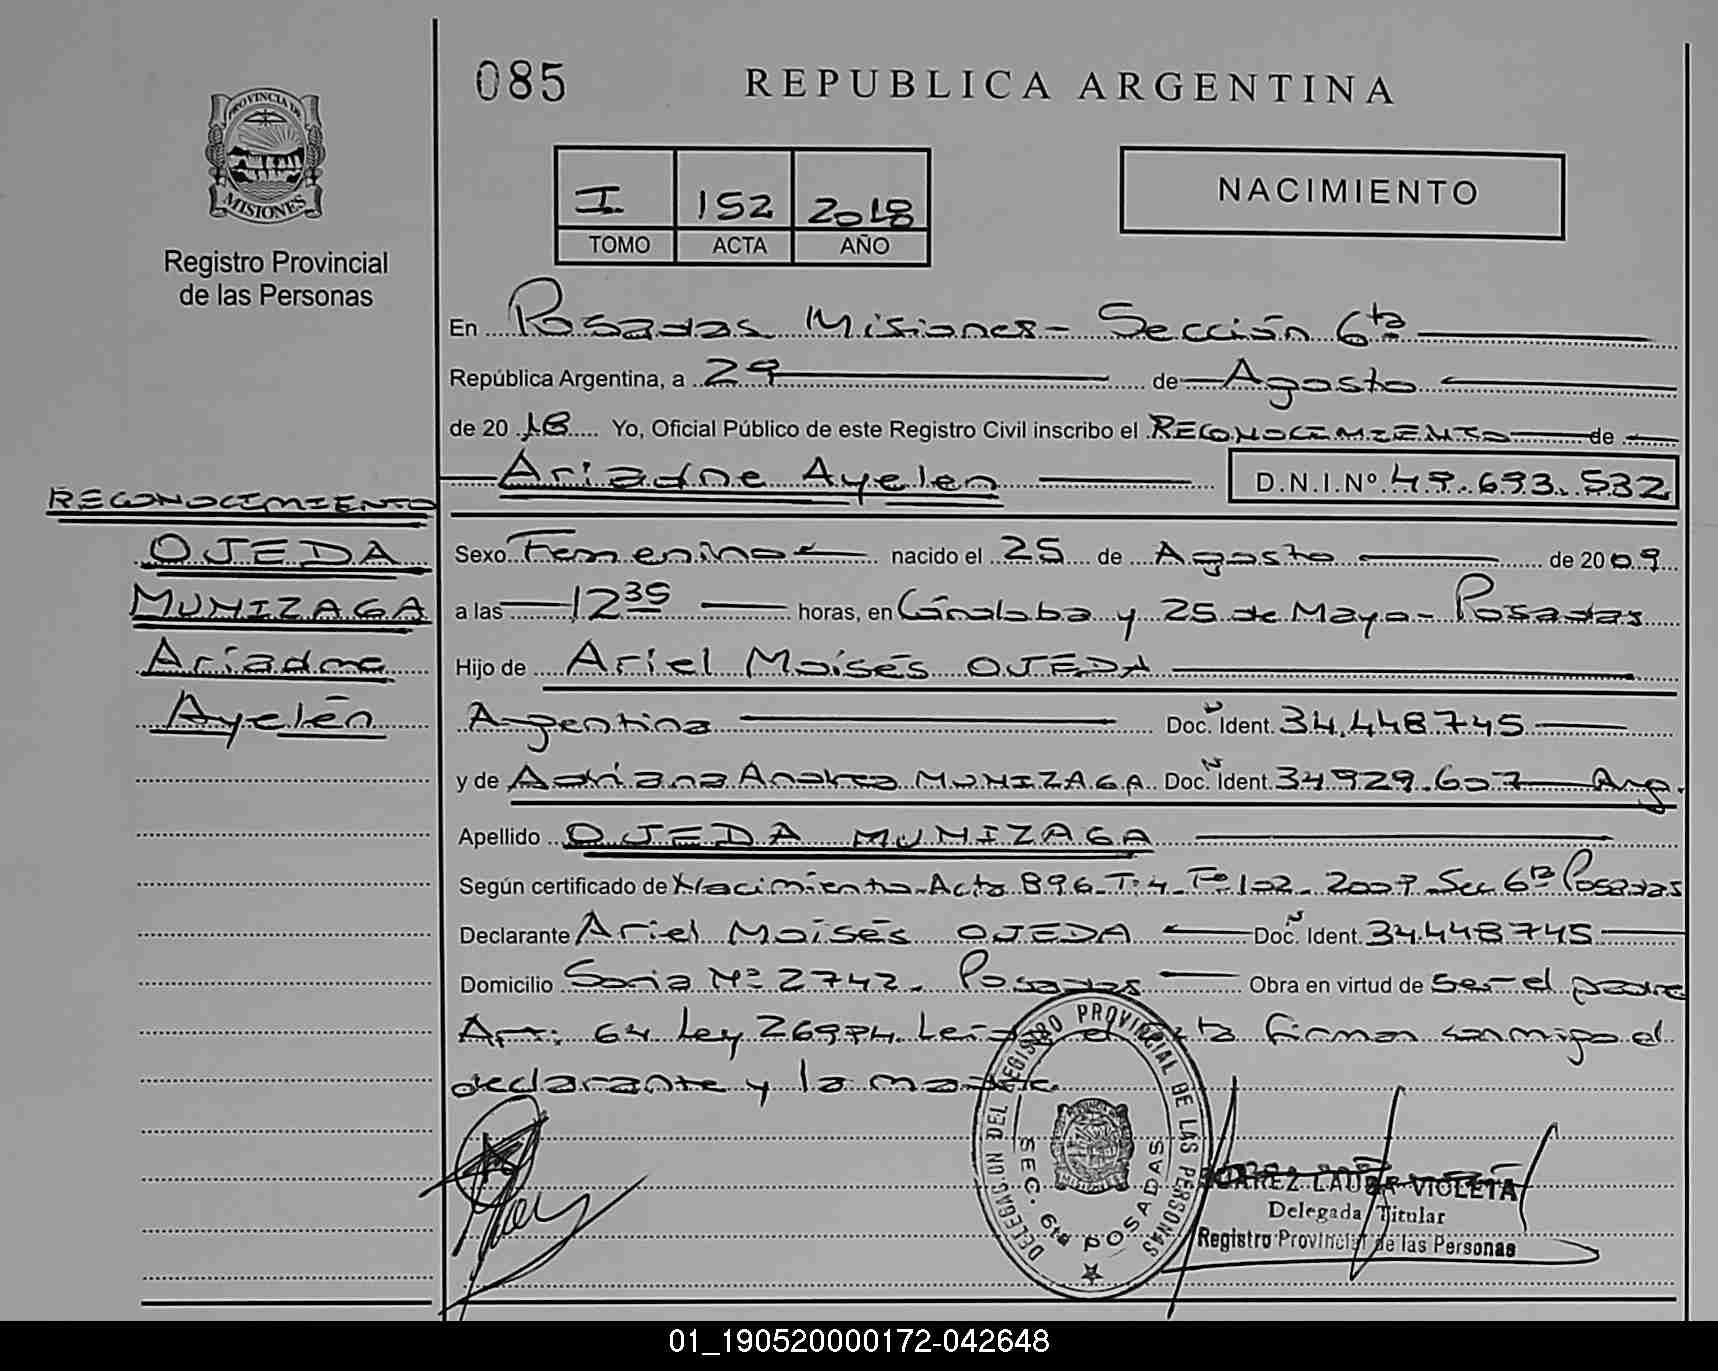 085
REPUBLICA ARGENTINA
PROVINCIA DE
MISIONES
Registro Provincial
de las Personas
I 152 2018
TOMO ACTA AÑO
NACIMIENTO
En Posadas Misiones- Sección 6ta
República Argentina, a 29 de Agosto
de 2018 Yo, Oficial Público de este Registro Civil inscribo el RECONOCIMIENTO de
Ariadne Ayelen D.N.I.Nº 49.693.532
RECONOCIMIENTO
OJEDA
MUNIZAGA
Ariadne
Ayelén
Sexo Femenino nacido el 25 de Agosto de 2009
a las 12 35 horas, en Córdoba y 25 de Mayo- Posadas
Hijo de Ariel Moisés OJEDA
Argentina Doc. Ident. 34.448745
y de Adriana Andrea MUNIZAGA Doc. Ident. 34929.607 Arg.
Apellido OJEDA MUNIZAGA
Según certificado de Nacimiento Acta 896 T:4 Fº 102 2009 Sec 6ta Posadas
Declarante Ariel Moisés OJEDA Doc. Ident. 34.448745
Domicilio Soria Nº 2742. Posadas Obra en virtud de ser el padre
Art: 64 Ley 26994. Leída el acta firman conmigo el
declarante y la madre.
DELEGACION DEL REGISTRO PROVINCIAL DE LAS PERSONAS
SEC. 6ta POSADAS
LAURA VIOLETA
Delegada Titular
Registro Provincial de las Personas
01_190520000172-042648